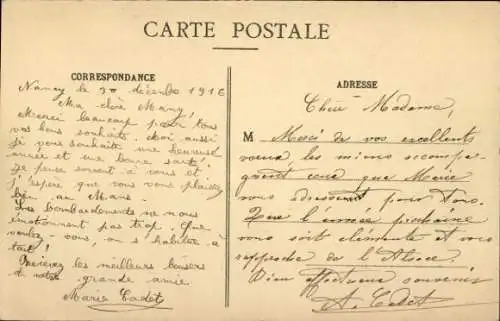 CARTE POSTALE
CORRESPONDANCE
Nancy le 30 décembre 1916
Ma chère Many
Merci beaucoup pour tous
vos bons souhaits. Moi aussi
je vous souhaite une heureuse
année et une bonne santé.
Je pense souvent à vous et
j'espère que vous vous plaisez
bien au Mans.
Les bombardements ne nous
émotionnent pas trop. Que
voulez vous, on s'habitue à
tout!
Recevez les meilleurs baisers
de votre grande amie
Marie Cadet
ADRESSE
Chère Madame,
M Merci de vos excellents
voeux les mêmes accompa-
gnent ceux que Marie
vous adressent pour
Que l'année prochaine
vous soit clémente et vous
rapproche de l'Alsace.
Bien affectueux souvenirs
A. Cadet